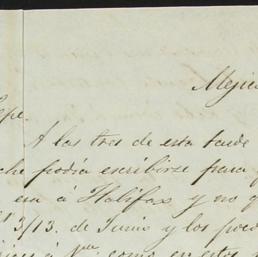 Mejic
epe.
A las tres de esta tarde
che podia escribirse para
em á Halifax y no q
3/13. de Junio y los pued
á como en estos